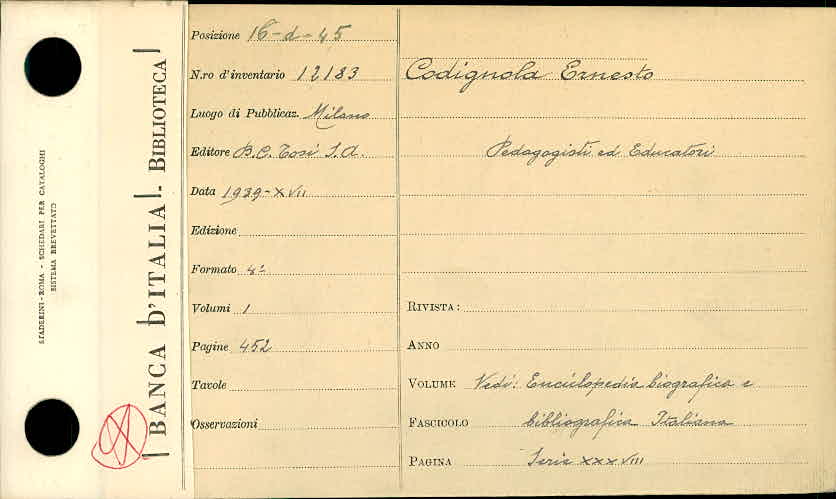 STADERINI - ROMA - SCHEDARI PER CATALOGHI
SISTEMA BREVETTATO
BANCA D'ITALIA - BIBLIOTECA
Posizione 16-d-45
N.ro d'inventario 12183
Luogo di Pubblicaz. Milano
Editore B.C. Tosi S.A.
Data 1939-XVII
Edizione
Formato 4º
Volumi 1
Pagine 452
Tavole
Osservazioni
Codignola Ernesto
Pedagogisti ed Educatori
RIVISTA:
ANNO
VOLUME Vedi: Enciclopedia biografica e
FASCICOLO bibliografica Italiana
PAGINA Serie XXXVIII